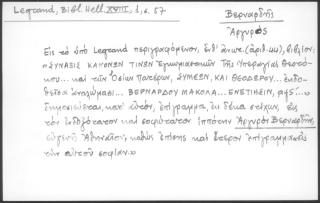 Legrand, Bibl. Hell. XVIII, 1, σ. 57
Βερναρδῆς
Ἀργυρός
Εἰς τὸ ὑπὸ Legrand περιγραφόμενον, ἐνθ' ἀνωτ. (ἀριθ. 44), βιβλίον:
"ΣΥΝΑΞΙΣ ΚΑΝΟΝΩΝ ΤΙΝΩΝ Ἐγκωμιαστικῶν Τῆς Ὑπεραγίας Θεοτό-
κου... καὶ τῶν Ὁσίων Πατέρων, ΣΥΜΕΩΝ, ΚΑΙ ΘΕΟΔΩΡΟΥ... ἐκδο-
θεῖσα ἀναλώμασι... ΒΕΡΝΑΡΔΟΥ ΜΑΚΟΛΑ... ΕΝΕΤΙΗΣΙΝ,
δημοσιεύεται, κατ' αὐτόν, ἐπίγραμμα, ἐκ δέκα στίχων, εἰς
τὸν ἐνδοξότατον καὶ σοφώτατον ἱππότην Ἀργυρὸν Βερναρδῆν,
εὐγενῆ Ἀθηναῖον, καθὼς ἐπίσης καὶ ἕτερον ἐπίγραμμα εἰς
τὴν αὐτοῦ σοφίαν.